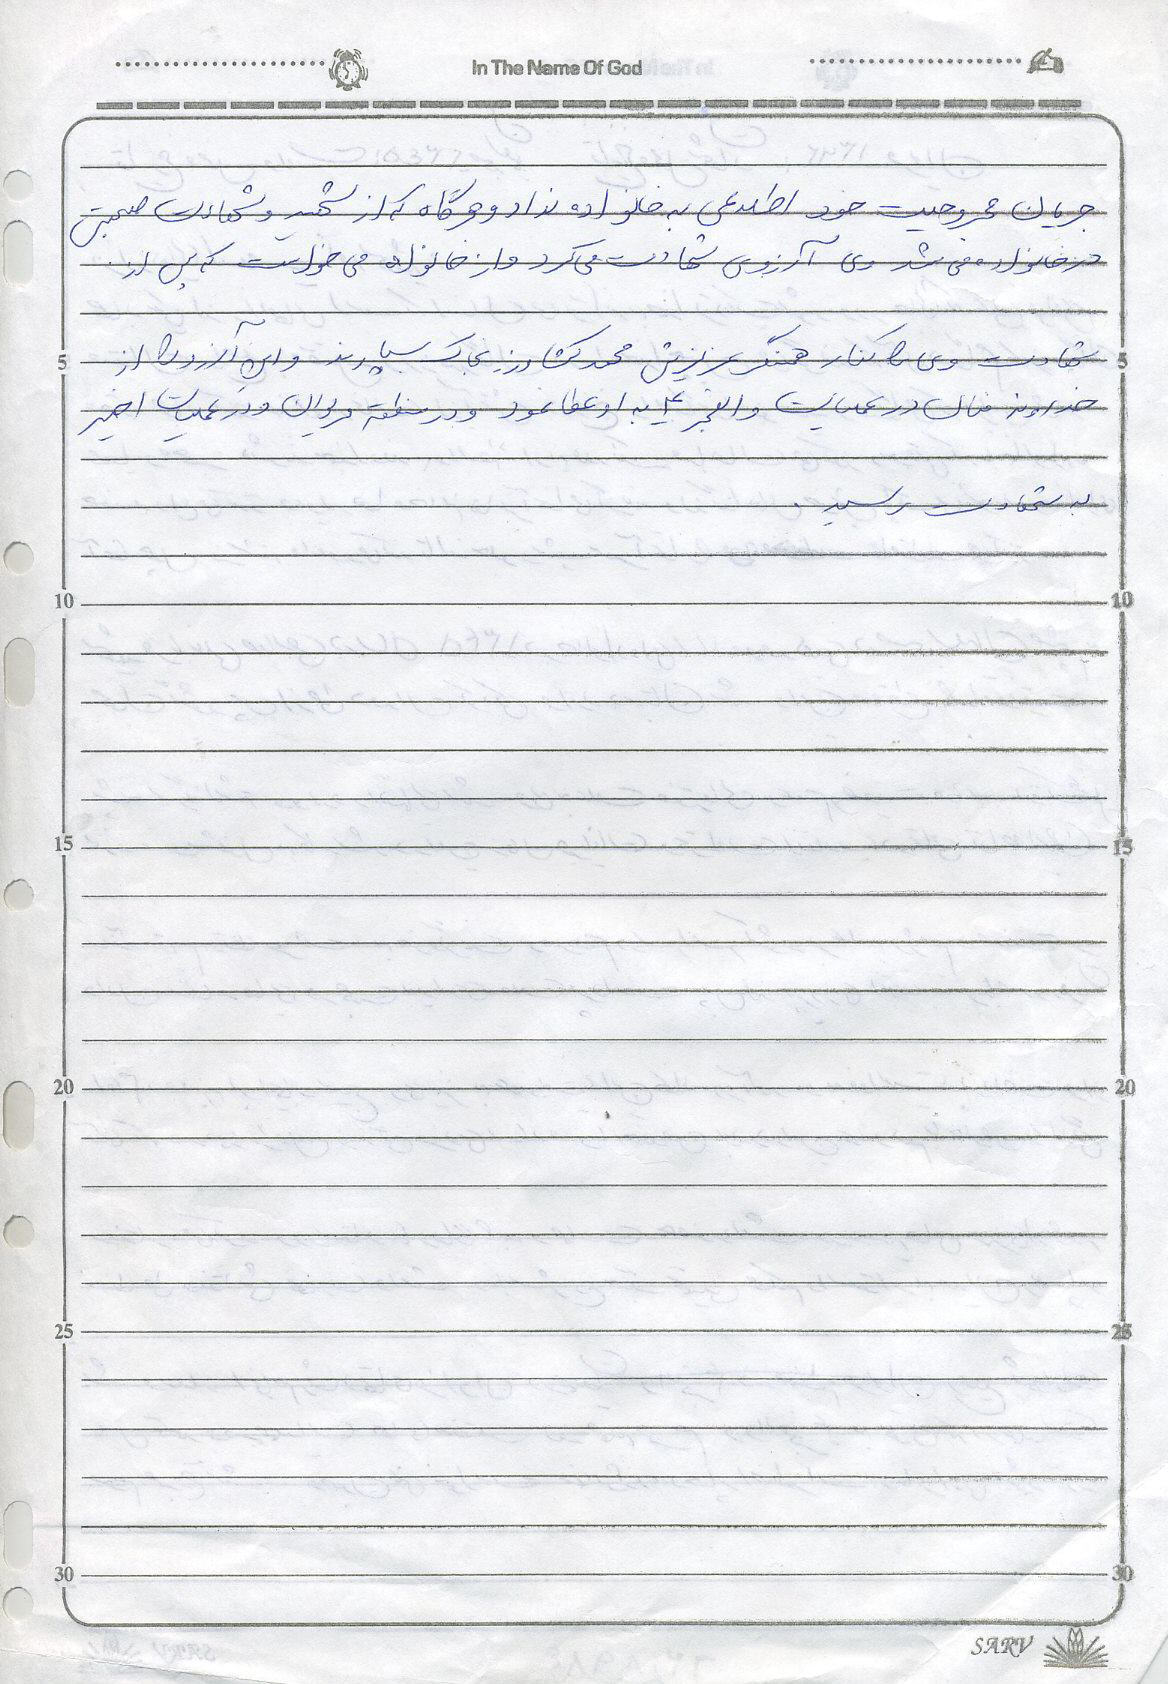 In The Name Of God
جریان مجروحیت خود اطلاعی به خانواده نداد و هرگاه که از شهید و شهادت صحبتی
در خانواده می شد وی آرزوی شهادت می کرد و از خانواده می خواست که پس از
5 شهادت وی را کنار همسنگر عزیزش محمد کشاورز بخاک بسپارند و این آرزو را از 5
خداوند متعال در عملیات والفجر ۴ به او عطا نمود و در منطقه مریوان و در عملیات اخیر
به شهادت رسید .
10 10
15 15
20 20
25 25
30 30
SARV